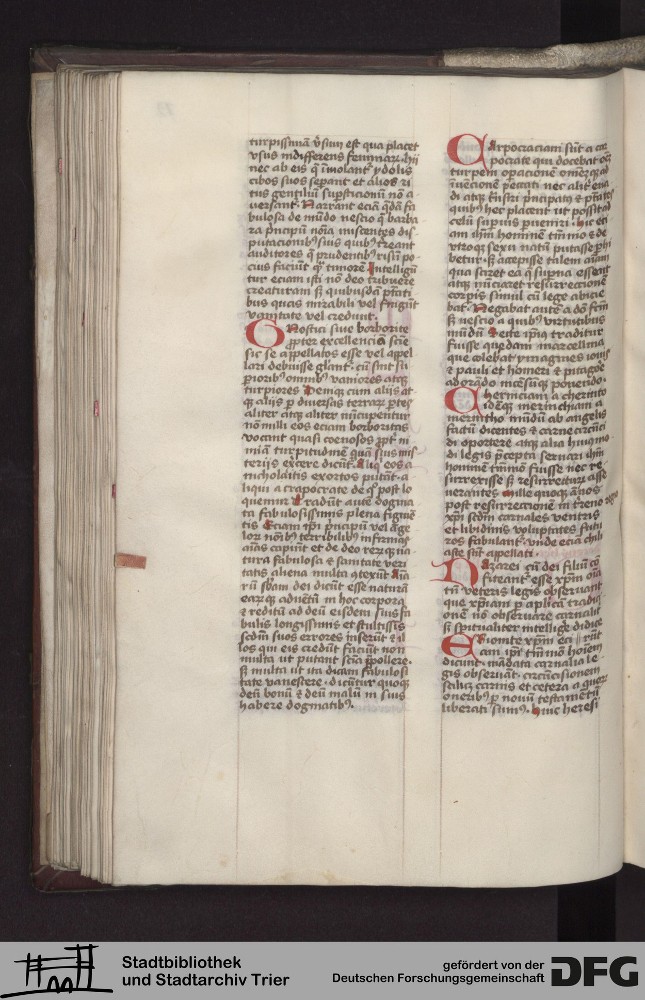 turpissimā
vsus indifferens feminarꝝ. hij
nec ab eis q̄ ỹmolant̉ ydolis
cibos suos sep̄ant et alios ri
tus gentiliū sup̄sticionū nō a
versant̉. Narrant eciā q̄dā fa
bulosa de mūdo nescio q̄ barba
ra p̄ncipū nōīa miscentes dis
putacionibꝰ suis quibꝰ t̉reant
auditores q̄ prudentibꝰ risū po
cius faciūt q̄ꝫ timorē Intelligūt̉
tur eciam isti nō deo tribuere
creaturam sꝫ quibusdā p̄tāti
bus quas mirabili vel fingūt
vanitate vel credunt.
Gnostici siue borborite
ꝓpter excellenciā sciē
sic se appellatos esse vel appel
lari debuisse gl̄ant̉. cū sint su
p̄ioribꝰ omnibꝰ vaniores atqꝫ
turpiores Deniqꝫ cum alijs at
qꝫ alijs ꝑ diuersas terrarꝝ ꝑtes
aliter atqꝫ aliter nūcupentur
nōnulli eos eciam borboritas
vocant quasi coenosos ꝓpt̉ ni
miā turpitudinē quā suis mis
terijs exc̉cere dicūt̉. Aliqͥ eos a
nicholaitis exortos putāt. a
liqui a crapocrate de qͦ post lo
quemur Tradūt autē dogma
ta fabulosissimis plena figmē
tis Eciam ip̄i p̄ncipū vel āge
lorꝝ nōībꝰ terribilibꝰ infirmas
aīas capiūt et de deo rerꝝ na
tura fabulosa ⁊ sanitate veri
tatis aliena multa ꝯtexūt Aīa
rū sb̄am dei dicūt esse naturā
earꝝqꝫ aduētū in hoc corpora
⁊ reditū ad deū eisdem suis fa
bulis longissimis et stultissīs
scd̄m suos errores inserūt ⁊ il
los qui eis credūt faciūt non
multa ut putant sciā p̄pollere.
sꝫ multa ut ita dicam fabulosi
tate vanescere. dicūtur quoqꝫ
deū bonū ⁊ deū malū in suis
habere dogmatibꝰ.
Carpocraciani sūt a car
pocrate qui docebat oēꝫ
turpem opacionē omēꝫqꝫ ad
īuēcionē peccati nec alit̉ eua
di atqꝫ t̉nsiri p̄ncipatꝰ ⁊ p̄tātes
quibꝰ hec placent ut possit ad
celū sup̄ius ꝑueniri. hic eci
am ihm̄ hominē tm̄mō ⁊ de
vtroqꝫ sexu natū putasse ꝑhi
betur. sꝫ accepisse talem aīam
qua sciret ea q̄ sup̄na essent
atqꝫ nūciaret resurreccionē
corꝑis simul cū lege abicie
bat. Negabat autē a dō fcm̄
sꝫ nescio a quibꝰ virtutibus
mūdū Secte ip̄iꝰ traditur
fuisse quedam marcellina
que colebat ymagines ioh̄is
⁊ pauli et homeri ⁊ pitagoē
adorādo incēsūqꝫ ponendo.
Cherinciani a cherinto
idēqꝫ merinchiani a
merintho mūdū ab angelis
factū dicentes ⁊ carne circūci
di oportere atqꝫ alia huiꝰmo
di legis p̄cepta seruari ihm̄
hominē tm̄mō fuisse nec re
surrexisse sꝫ resurrecturū asse
uerantes Mille quoqꝫ ānos
post resurreccionē in t̉reno regno
xp̄i scd̄m carnales ventris
et libidinis voluptates futu
ros fabulant̉. vnde eciā chili
aste sūt appellati.
Nazarei cū dei filiū cō
fiteant̉ esse xp̄m oīa
tn̄ veteris legis obseruant
que xp̄iani ꝑ aplicā tradici
onē nō obseruare carnalit̉
sꝫ spiritualiter intellige̾ didicerūt
Ebionite xp̄m eci
am ip̄i tm̄mō hoīem
dicunt. mādata carnalia le
gis obseruāt. circūcisionem
scilicꝫ carnis et cetera a quorꝝ
oneribꝰ ꝑ nouū testamētū
liberati sumꝰ. huic heresi
Stadtbibliothek
und Stadtarchiv Trier
gefördert von der
Deutschen Forschungsgemeinschaft
DFG